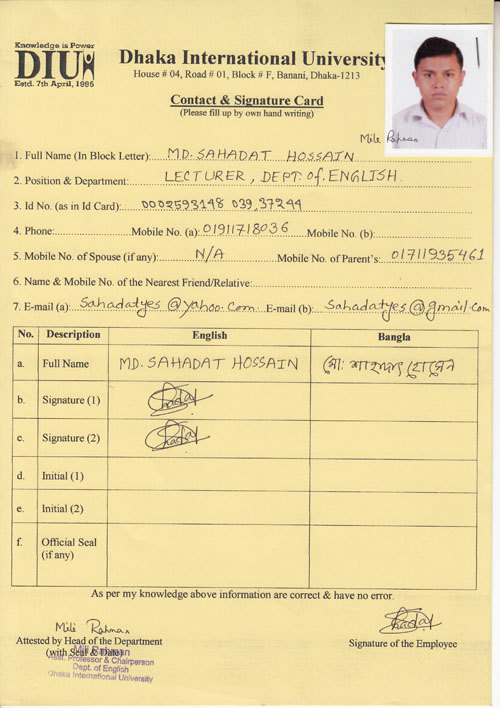 Knowledge is Power
DIU
Estd. 7th April, 1995
Dhaka International University
House # 04, Road # 01, Block # F, Banani, Dhaka-1213
Contact & Signature Card
(Please fill up by own hand writing)
Mili Rahman
1. Full Name (In Block Letter): MD. SAHADAT HOSSAIN
2. Position & Department: LECTURER, DEPT. of. ENGLISH.
3. Id No. (as in Id Card): 0002593148 039,37244
4. Phone: Mobile No. (a): 01911718036 Mobile No. (b):
5. Mobile No. of Spouse (if any): N/A Mobile No. of Parent's: 01711935461
6. Name & Mobile No. of the Nearest Friend/Relative:
7. E-mail (a): Sahadatyes@yahoo.com E-mail (b): Sahadatyes@gmail.com
No. Description English Bangla
a. Full Name MD. SAHADAT HOSSAIN মো: শাহাদাৎ হোসেন
b. Signature (1)
c. Signature (2)
d. Initial (1)
e. Initial (2)
f. Official Seal
(if any)
As per my knowledge above information are correct & have no error.
Mili Rahman
Attested by Head of the Department
(with Seal & Date)
Signature of the Employee
Mili Rahman
Asst. Professor & Chairperson
Dept. of English
Dhaka International University